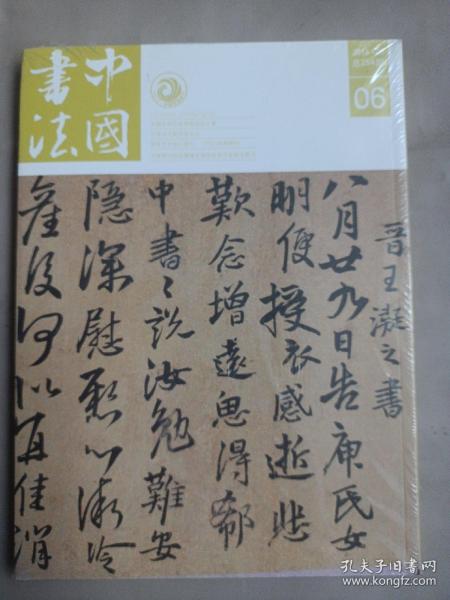 中國
書法
06
晉王凝之書
八月廿九日告庾氏女
明便授衣感逝悲
歎念增遠思得郗
中書〻說汝勉難安
隱深慰懸心漸冷
產後何似宜佳消
孔夫子旧书网
www.kongfz.com